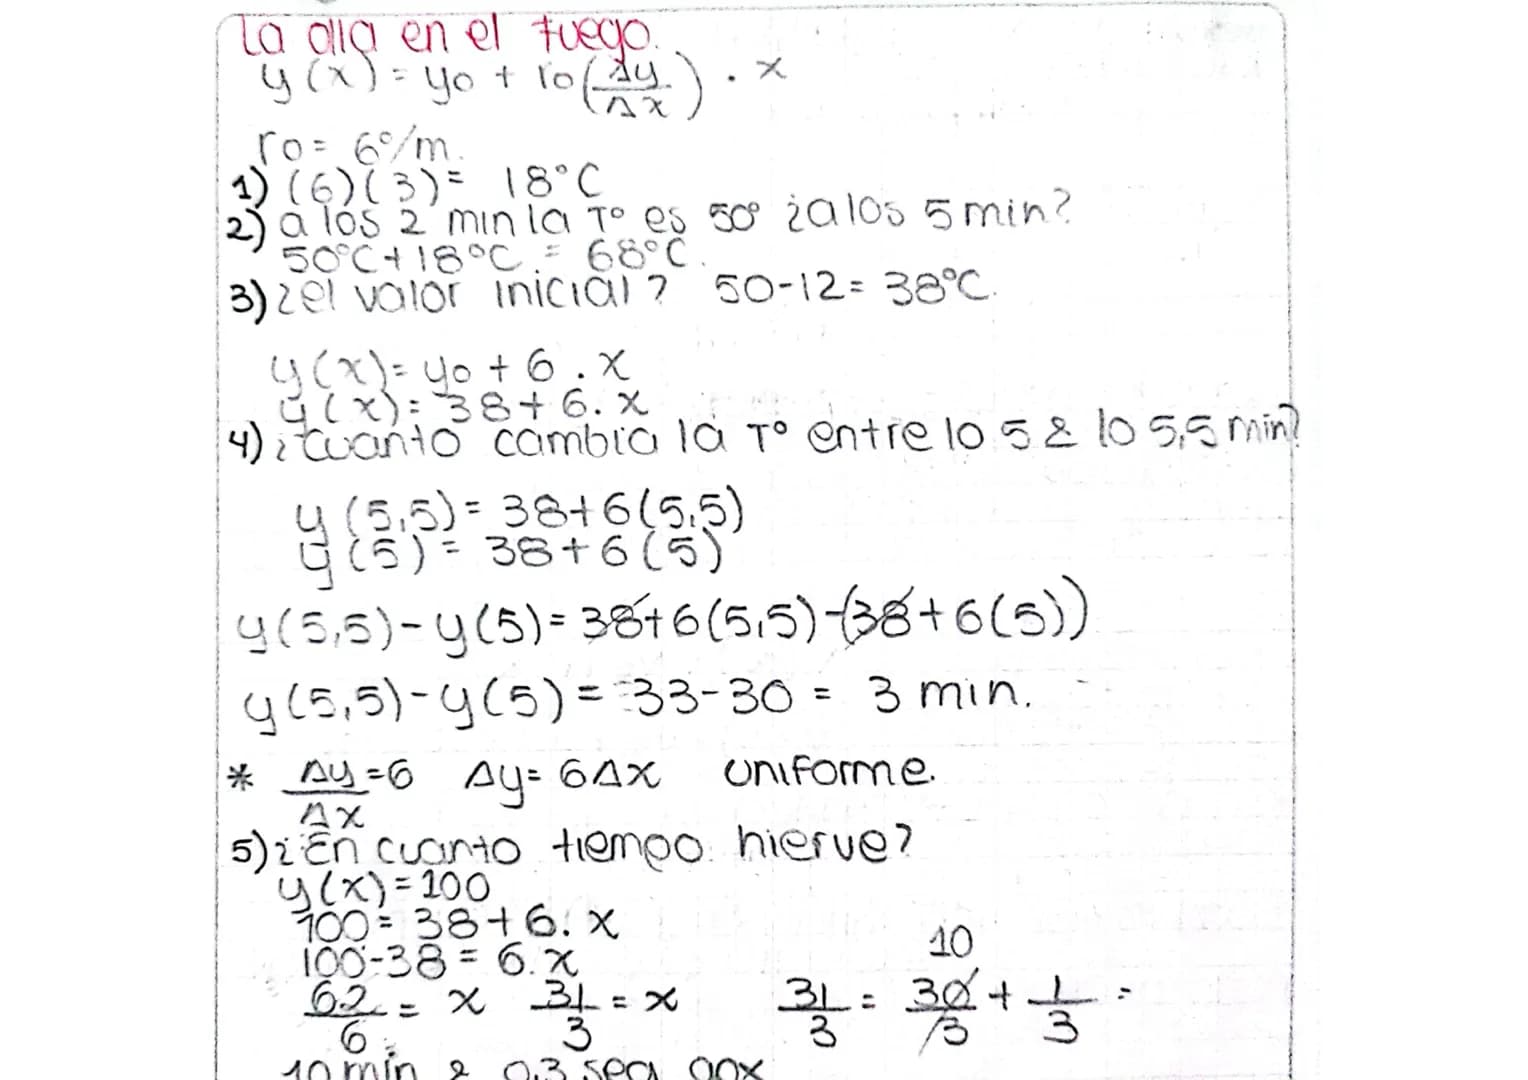 La olla en el fuego.
y(x) = y0 + r0(Δy/Δx) · x
r0 = 6°/m.
1) (6)(3) = 18°C
2) a los 2 min la T° es 50° ¿a los 5 min?
50°C + 18°C = 68°C.
3) ¿el valor inicial? 50-12 = 38°C.
y(x) = y0 + 6 . x
y(x) = 38 + 6. x
4) ¿cuanto cambia la T° entre lo 5 & lo 5,5 min?
y(5,5) = 38+6(5,5)
y(5) = 38+6(5)
y(5,5) - y(5) = 38+6(5,5)-(38+6(5))
y(5,5) - y(5) = 33-30 = 3 min.
* Δy/Δx = 6 Δy = 6Δx uniforme.
5) ¿En cuanto tiempo hierve?
y(x) = 100
100 = 38 + 6. x
100-38 = 6. x
62/6 = x 31/3 = x 31/3 = 10 30/3 + 1/3 =
10 min & 0,3 seg apx